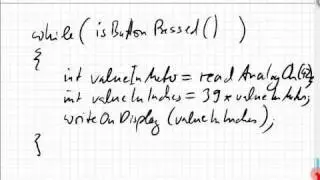 while ( isButtonPressed() )
{
int valueInMeter = readAnalogOn(42);
int valueInInches = 39 * valueInMeter;
writeOnDisplay (valueInInches);
}